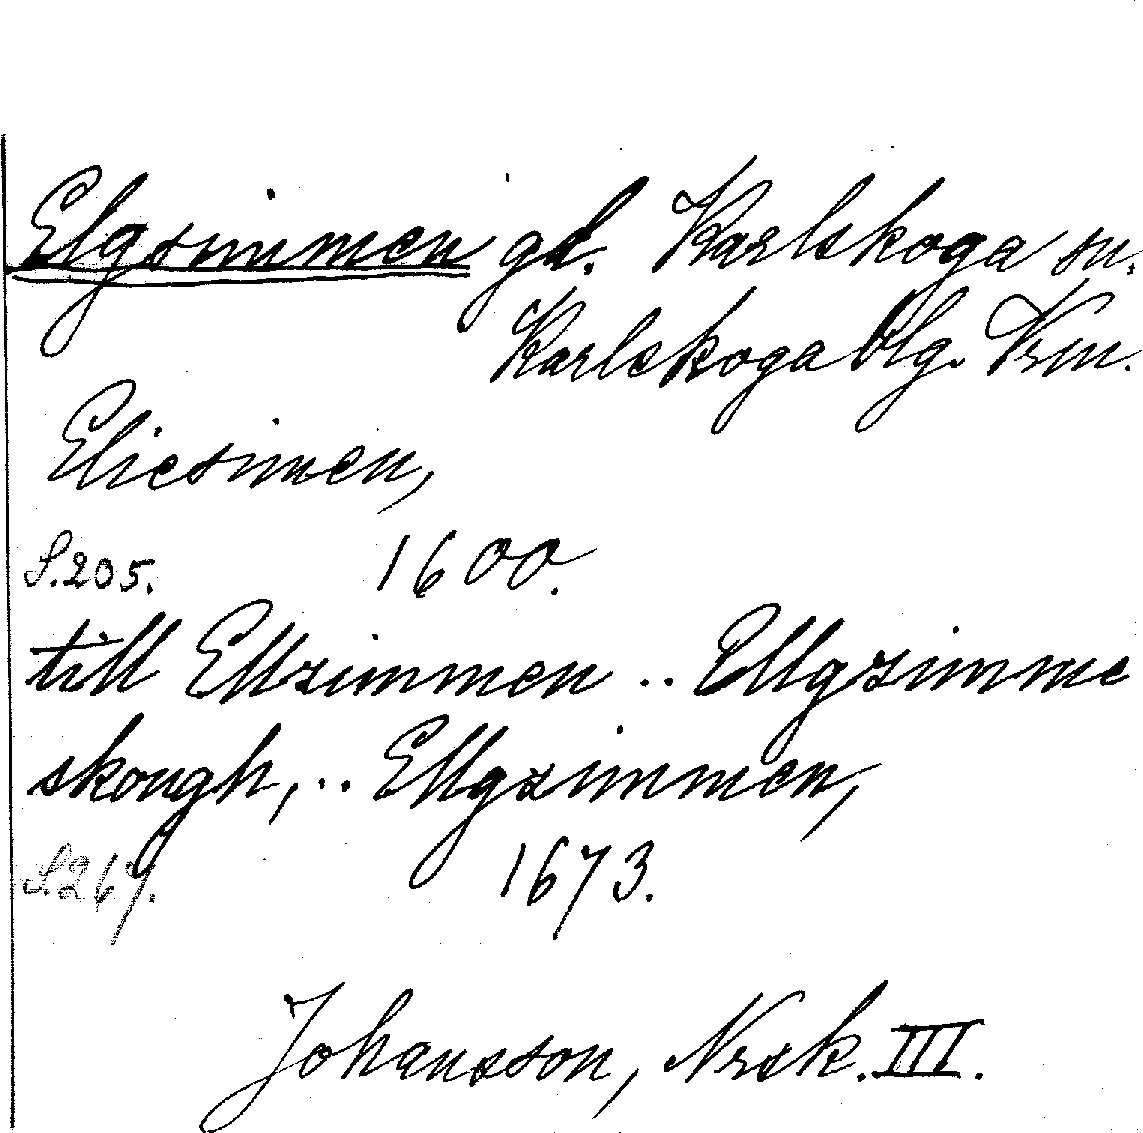 Elgsimmen gd. Karlskoga sn.
Karlskoga blg. Vrm.
Eliesimen,
S. 205. 1600.
till Ellzimmen .. Ellgzimme
skough, .. Ellgzimmen,
S. 267. 1673.
Johansson, Nrsk. III.